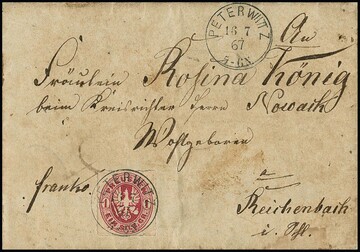 PETERWITZ
16 7
67
5-6N
An
Fräulein Rosina König
beim Kreisrichter Herrn Nowack
Wohlgeboren
franko.
PETERWITZ
1 1
EIN SILB. GR.
Reichenbach
i. Schl.